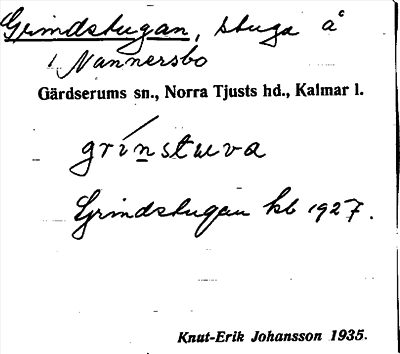 Grindstugan, stuga å
1 Nannersbo
Gärdserums sn., Norra Tjusts hd., Kalmar l.
grínstuva
Grindstugan kb 1927.
Knut-Erik Johansson 1935.